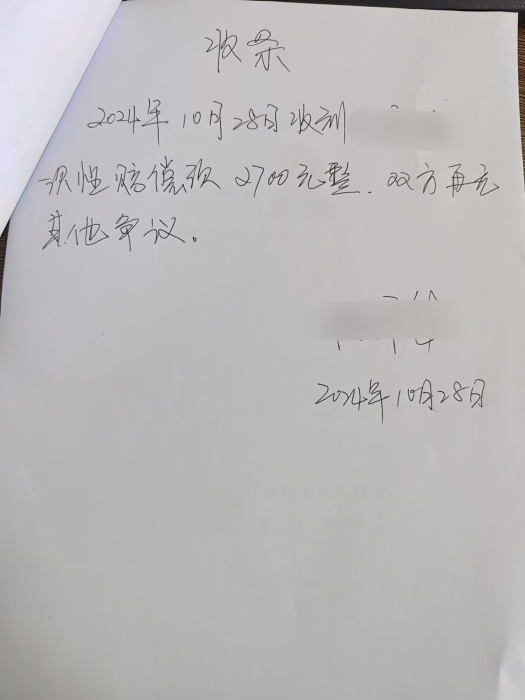 收条
2024年10月28日收到
一次性赔偿款2700元整.双方再无
其他争议。
2024年10月28日